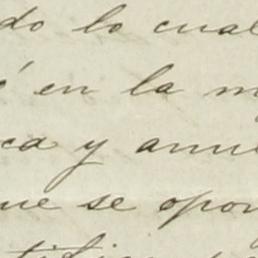 do lo cual
é en la m
ca y anu
ue se opon